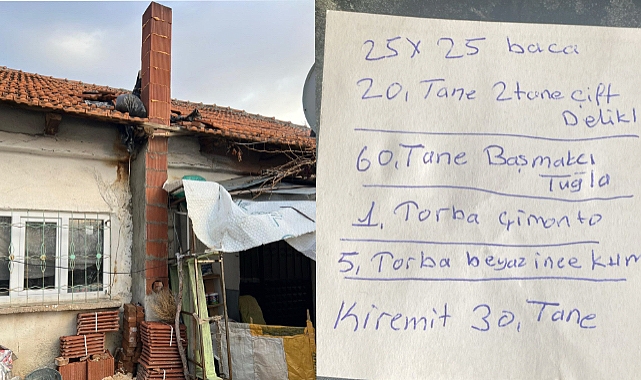 25x25 baca
20, Tane 2tane çift
Delikl
60, Tane Başmakcı
Tuğla
1, Torba çimonto
5, Torba beyaz ince kum
Kiremit 30, Tane